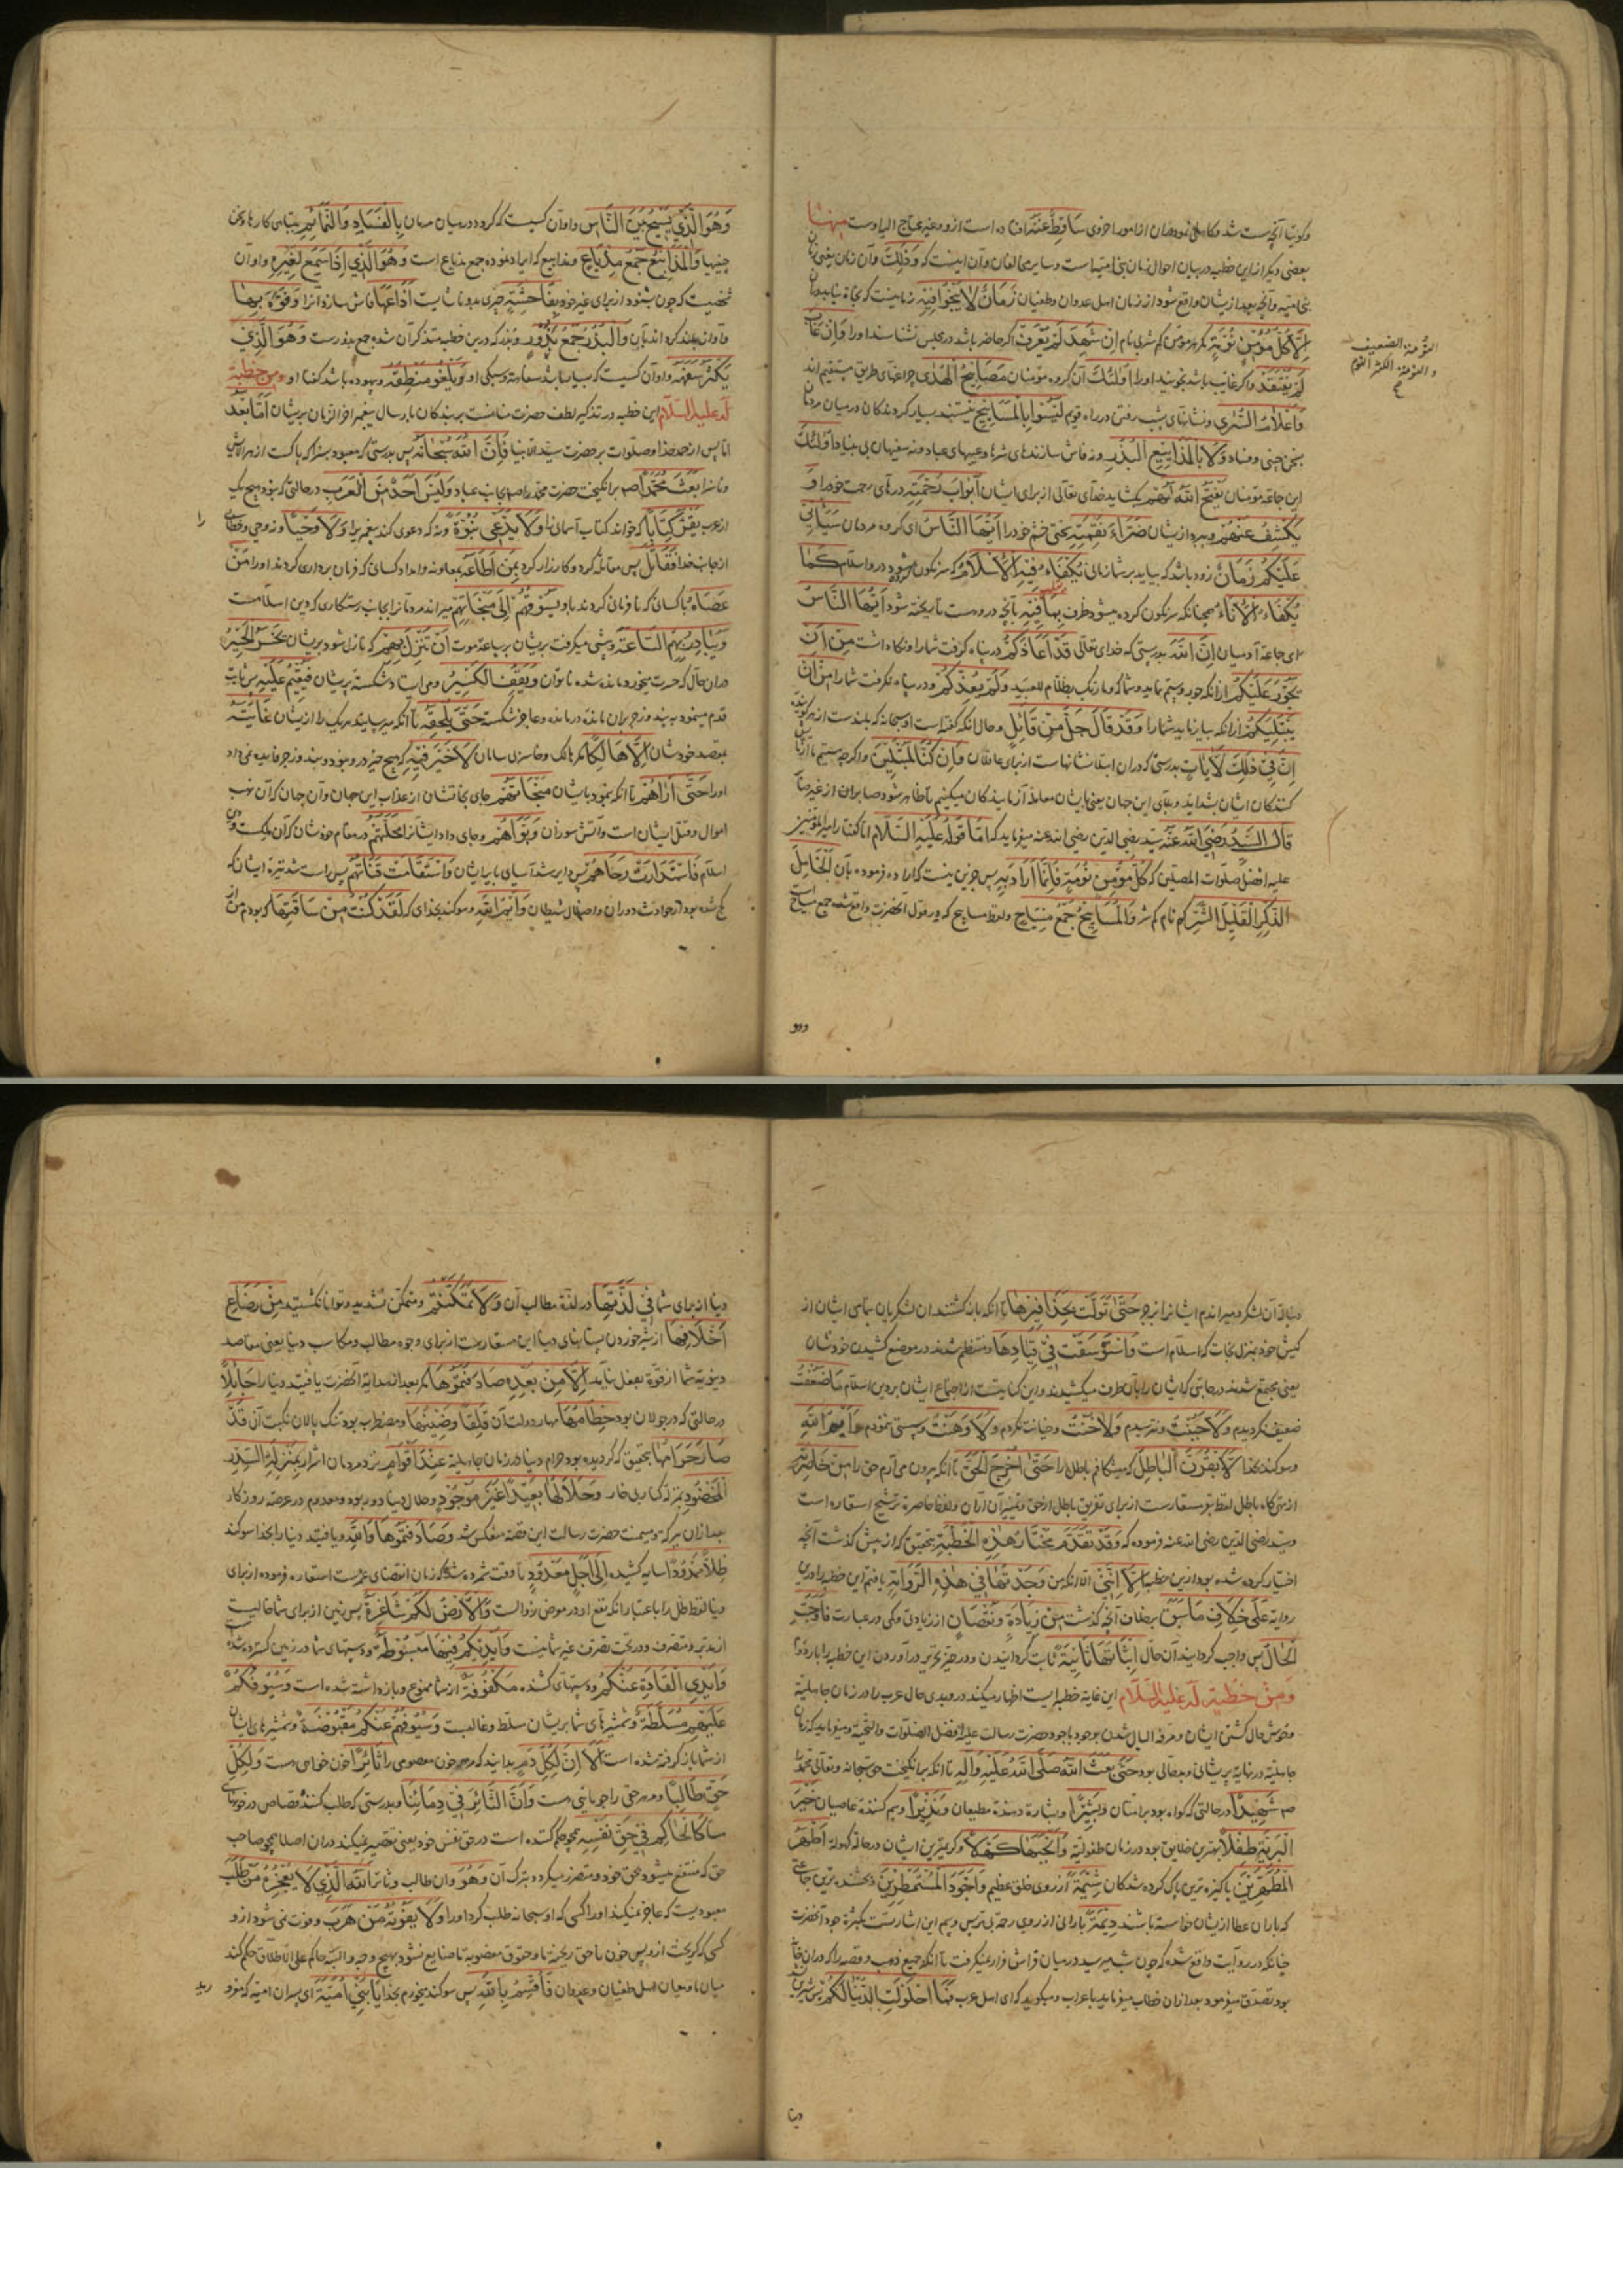 وکویا آنچه سست شد و کاهلی نمود دران از امور اخروی سَاقِطٌ عَنْهُ افتاده است از و و غیر محتاج الیه اوست منها
بعضی دیگر از این خطبه در بیان احوال زمان بنی امیه است و سایر مخالفان و آن اینست که وَذٰلِكَ و آن زمان یعنی زمان
بنی امیه و آنچه بعد از یشان واقع شود از زمان اهل عدوان و طغیان زَمَانٌ لَا يَنْجُو فِيهِ زمانیست که نجات نیابد در آن
اِلَّا كُلُّ مُؤْمِنٍ نُوَمَةٍ مکر هر مؤمن کم شری نام اِنْ شَهِدَ لَمْ يُعْرَفْ اکر حاضر باشد در مجلس نشناسند او را وَاِنْ غَابَ
لَمْ يُفْتَقَدْ واکر غایب باشد نجویند او را اُولٰئِكَ آن کروه مؤمنان مَصَابِيحُ الْهُدٰى چراغهای طریق مستقیم اند
وَاَعْلَامُ السُّرٰى ونشانهای شب رفتن در راه قویم لَيْسُوا بِالْمَسَايِيحِ نیستند بسیار کردندکان در میان مردمان
بسخن چینی و فساد وَلَا بِالْمَذَايِيعِ الْبُذُرِ و نه فاش سازنده های شرها و عیبهای عباد و نه سفیهان بی بنیاد اُولٰئِكَ
این جماعة مؤمنان يَفْتَحُ اللّٰهُ لَهُمْ بکشاید خدای تعالی از برای ایشان اَبْوَابَ رَحْمَتِهِ درهای رحمت خود را وَ
يَكْشِفُ عَنْهُمْ و ببرد از یشان ضَرَّاءَ نِقْمَتِهِ سختی خشم خود را اَيُّهَا النَّاسُ ای کروه مردمان سَيَأْتِي
عَلَيْكُمْ زَمَانٌ زود باشد که بیاید بر شما زمانی يُكْفَاُ فِيهِ الْاِسْلَامُ که سرنکون کرده شود درو اسلام كَمَا
يُكْفَاُ الْاِنَاءُ همچنانکه سرنکون کرده میشود ظرف بِمَا فِيهِ بآنچه دروست تا ریخته شود اَيُّهَا النَّاسُ
ای جماعة آدمیان اِنَّ اللّٰهَ بدرستی که خدای تعالی قَدْ اَعَاذَكُمْ در پناه کرفت شما را و نکاه داشت مِنْ اَنْ
يَجُورَ عَلَيْكُمْ ازانکه جور و ستم نماید بر شما که وما ربک بظلام للعبید وَلَمْ يُعِذْكُمْ و در پناه نکرفت شما را مِنْ اَنْ
يَبْتَلِيَكُمْ ازانکه بیازماید شما را وَقَدْ قَالَ جَلَّ مِنْ قَائِلٍ و حال آنکه کفته است او سبحانه که بلندست از هر کوینده
اِنَّ فِي ذٰلِكَ لَاٰيَاتٍ بدرستی که دران ابتلا نشانهاست از برای عاقلان وَاِنْ كُنَّا لَمُبْتَلِينَ و اکر چه هستیم ما آزمایش
کنندکان ایشان بشداید و بلای این جهان یعنی بایشان معامله آزمایندکان میکنیم تا ظاهر شود صابران از غیر صابران
قَالَ السَّيِّدُ رَضِيَ اللّٰهُ عَنْهُ سید رضی الدین رضی الله عنه میفرماید که اَمَّا قَوْلُهُ عَلَيْهِ السَّلَامُ اما کفتار امیر المؤمنین
علیه افضل صلوات المصلین که كُلُّ مُؤْمِنٍ نُوَمَةٍ فَاِنَّمَا اَرَادَ بِهِ پس جز این نیست که اراده فرموده بآن الْخَامِلَ
الذِّكْرِ الْقَلِيلَ الشَّرِّ کم نام کم شر وَالْمَسَايِيحُ جَمْعُ مِسْيَاحٍ و لفظ مساییح که در قول آنحضرت واقع شده جمع مسیاح است
النُّوْمة الضعیف
و النُوَمة الکثیر النوم
وهو
وَهُوَ الَّذِي يَسِيحُ بَيْنَ النَّاسِ و او آن کسیست که کردد در میان مردمان بِالْفَسَادِ وَالنَّمَائِمِ بتباهی کارها و سخن
چینیها وَالْمَذَايِيعُ جَمْعُ مِذْيَاعٍ و مذاییع که ایراد نموده جمع مذیاع است وَهُوَ الَّذِي اِذَا سَمِعَ لِغَيْرِهِ و او آن
شخصیست که چون بشنود از برای غیر خود بِفَاحِشَةٍ چیزی بد و ناشایست اَذَاعَهَا فاش سازد آنرا وَنَوَّهَ بِهَا
و آوازه بلند کرداند بآن وَالْبُذُرُ جَمْعُ بَذُورٍ و بذر که درین خطبه متذکر آن شده جمع بذورست وَهُوَ الَّذِي
يَكْثُرُ سَفَهُهُ و او آن کسیست که بسیار باشد سفاهت و سبکی او وَيَلْغُو مَنْطِقُهُ و بیهوده باشد کفتار او ومن خطبة
له علیه السلام این خطبه در تذکیر لطف حضرت منانست بر بندکان بارسال پیغمبر اخر الزمان بریشان اَمَّا بَعْدُ
اما پس از حمد خدا و صلوات بر حضرت سید الانبیا فَاِنَّ اللّٰهَ سُبْحَانَهُ پس بدرستی که معبود بسزا که پاکست از هر الایش
و ناسزا بَعَثَ مُحَمَّدًا ص برانکیخت حضرت محمد را ص بجانب عباد وَلَيْسَ اَحَدٌ مِنَ الْعَرَبِ درحالتی که نبود هیچ یک
از عرب يَقْرَاُ كِتَابًا که خواند کتاب آسمانی را وَلَا يَدَّعِي نُبُوَّةً و نه که دعوی کند پیغمبری را وَلَا وَحْيًا و نه وحی و خطابی را
از جانب خدا فَقَاتَلَ پس مقاتله کرد و کارزار کرد بِمَنْ اَطَاعَهُ بمعاونه و امداد کسانی که فرمان برداری کردند او را مَنْ
عَصَاهُ با کسان که نافرمان کردند باو يَسُوقُهُمْ اِلٰى مَنْجَاتِهِمْ میراند مردمانرا بجانب رستکاری که دین اسلامست
وَيُبَادِرُ بِهِمُ السَّاعَةَ و پیشی میکرفت بریشان بساعة موت اَنْ تَنْزِلَ بِهِمْ که نازل شود بریشان يَحْسَرُ الْحَسِيرُ
دران حال که حسرت میخورد مانده شده ناتوان وَيَقِفُ الْكَسِيرُ و می ایستاد شکسته پریشان فَيُقِيمُ عَلَيْهِ پس ثابت
قدم مینمود به پند و زجر بران مانده درمانده و عاجز شکسته حَتّٰى يُلْحِقَهُ تا انکه میرسانید هر یک را از یشان غَايَتَهُ
بمقصد خودشان اِلَّا هَالِكًا مکر هالک و خاسری بی سامان لَا خَيْرَ فِيهِ که هیچ خیر درو نبود و پند و زجر فایده نمی داد
او را حَتّٰى اَرَاهُمْ تا انکه بنمود بایشان مَنْجَاتَهُمْ جای نجاتشان از عذاب این جهان و آن جهان که آن نهب
اموال و قتل ایشان است و آتش سوزان وَبَوَّاَهُمْ و جای داد ایشانرا مَحَلَّتَهُمْ در مقام خودشان که آن ملکیست و دین
اسلام فَاسْتَدَارَتْ رَحَاهُمْ پس دایر شد آسیای بایر ایشان وَاسْتَقَامَتْ قَنَاتُهُمْ پس راست شد نیزهٔ ایشان که
کج شده بود از حوادث دوران و اضلال شیطان وَايْمُ اللّٰهِ و سوکند بخدای که لَقَدْ كُنْتُ مِنْ سَاقَتِهَا که بودم من از
دنبالهٔ آن لشکر و میراندم ایشانرا بزجر حَتّٰى تَوَلَّتْ بِحَذَافِيرِهَا تا انکه باز کشتند ان لشکریان بتمامی ایشان از
کیش خود بمنزل نجات که اسلام است وَاسْتَوْسَقَتْ فِي قِيَادِهَا و منتظم شدند در موضع کشیدن خودشان
یعنی مجتمع شدند درحالتی که ایشان را بآن طرف میکشیدند و این کنایتست از اجتماع ایشان بر دین اسلام مَا ضَعُفْتُ
ضعیف نکردیدم وَلَا جَبُنْتُ و نترسیدم وَلَا خُنْتُ و خیانت نکردم وَلَا وَهَنْتُ و سستی ننمودم وَايْمُ اللّٰهِ
و سوکند بخدا لَاَبْقُرَنَّ الْبَاطِلَ که میشکافم باطل را حَتّٰى اُخْرِجَ الْحَقَّ تا انکه بیرون می آرم حق را مِنْ خَاصِرَتِهِ
از تهیکاه باطل لفظ بقر مستعارست از برای تفریق باطل از حق و تمییز آن از آن و لفظ خاصرة ترشیح استعاره است
و سید رضی الدین رضی الله عنه فرموده که وَقَدْ تَقَدَّمَ مُخْتَارُ هٰذِهِ الْخُطْبَةِ بتحقیق که از پیش کذشت آنچه
اختیار کرده شده بود ازین خطبه اِلَّا اَنَّنِي الا انکه من وَجَدْتُهَا فِي هٰذِهِ الرِّوَايَةِ یافتم این خطبه را درین
روایة عَلٰى خِلَافِ مَا سَبَقَ بر خلاف آنچه کذشت مِنْ زِيَادَةٍ وَنُقْصَانٍ از زیادتی و کمی در عبارت فَاَوْجَبَ
الْحَالُ پس واجب کردانید آن حال اِثْبَاتَهَا ثَانِيَةً ثابت کردانیدن و در حیز تحریر در آوردن این خطبه را بار دوم
وَمِنْ خُطْبَةٍ لَهُ عَلَيْهِ السَّلَامُ این غایة خطبه ایست اظهار میکند درو بدی حال عرب را در زمان جاهلیة
و خوش حال کشتن ایشان و مرفه البال شدن بوجود با جود حضرت رسالت علیه افضل الصلوات والتحیة و میفرماید که زمان
جاهلیة در نهایة پریشانی و بدحالی بود حَتّٰى بَعَثَ اللّٰهُ صَلَّى اللّٰهُ عَلَيْهِ وَآلِهِ تا انکه برانکیخت حق سبحانه و تعالی محمد را
ص شَهِيدًا درحالتی که کواه بود بر امتان وَبَشِيرًا و بشارة دهنده مطیعان وَنَذِيرًا و بیم کننده عاصیان خَيْرَ
الْبَرِيَّةِ طِفْلًا بهترین خلایق بود در زمان طفولیة وَاَنْجَبَهَا كَهْلًا و کریمترین ایشان در حالة کهولة اَطْهَرَ
الْمُطَهَّرِينَ پاکیزه ترین پاک کرده شدکان شِيمَةً از روی خلق عظیم وَاَجْوَدَ الْمُسْتَمْطَرِينَ و بخشنده ترین جماعتی
که باران عطا از یشان خواسته باشند دِيمَةً بارانی از روی رحمة بی ترس و بیم این اشارتست بکثرة جود آنحضرت
چنانکه در روایت واقع شده که چون شب میرسید در میان فراش قرار نمیکرفت تا انکه جمیع ذهب و فضه را که دران خانه
بود تصدق میفرمود بعد ازان خطاب میفرماید باعراب و میکوید که ای اهل عرب فَمَا احْلَوْلَتِ الدُّنْيَا لَكُمْ پس شیرین
دنیا
دنیا از برای شما فِي لَذَّتِهَا در لذة مطالب آن وَلَا تَمَكَّنْتُمْ و متمکن نشدید و توانا نکشتید مِنْ رَضَاعِ
اَخْلَافِهَا از شیر خوردن پستانهای دنیا این مستعارست از برای وجوه مطالب و مکاسب دنیا یعنی مقاصد
دنیویه شما از قوة بفعل نیامد اِلَّا مِنْ بَعْدِهِ صَادَفْتُمُوهَا مکر بعد از هدایة آنحضرت یافتید دنیا را جَائِلًا
درحالتی که در جولان بود خِطَامُهَا مهار دولت آن قَلِقًا وَضِينُهَا و مضطرب بود تنک پالان نکبت آن قَدْ
صَارَ حَرَامُهَا بتحقیق که کردیده بود حرام دنیا در زمان جاهلیة عِنْدَ اَقْوَامٍ نزد مردمان اشرار بِمَنْزِلَةِ السِّدْرِ
الْمَخْضُودِ بمنزلهٔ کنار بی خار وَحَلَالُهَا بَعِيدًا غَيْرَ مَوْجُودٍ و حلال دنیا دور بود و معدوم در عرصهٔ روزکار
بعد ازان ببرکة و میمنت حضرت رسالت این قضیه منعکس شد وَصَادَفْتُمُوهَا وَاللّٰهِ و یافتید دنیا را بخدا سوکند
ظِلًّا مَمْدُودًا سایه کشیده اِلٰى اَجَلٍ مَعْدُودٍ تا وقت شمرده شده که زمان انقضای عمرست استعاره فرموده از برای
دنیا لفظ ظل را باعتبار انکه نفع او در معرض زوالست وَالْاَرْضُ لَكُمْ شَاغِرَةٌ پس زمین از برای شما خالیست
از مدبر و متصرف و در تحت تصرف غیر شما نیست وَاَيْدِيكُمْ فِيهَا مَبْسُوطَةٌ و دستهای شما در زمین کسترده شده
وَاَيْدِي الْقَادَةِ عَنْكُمْ و دستهای کشنده مَكْفُوفَةٌ از شما ممنوع و بازداشته شده است وَسُيُوفُكُمْ
عَلَيْهِمْ مُسَلَّطَةٌ و شمشیرهای شما بریشان مسلط و غالبست وَسُيُوفُهُمْ عَنْكُمْ مَقْبُوضَةٌ و شمشیرهای ایشان
از شما باز کرفته شده است اَلَا اِنَّ لِكُلِّ دَمٍ بدانید که هر خون معصومی را ثَائِرًا خون خواهی هست وَلِكُلِّ
حَقٍّ طَالِبًا و مر هر حقی را جویائی هست وَاِنَّ الثَّائِرَ فِي دِمَائِنَا و بدرستی که طلب کنندهٔ قصاص در خونهای
ما كَالْحَاكِمِ فِي حَقِّ نَفْسِهِ همچو حکم کننده است در حق نفس خود یعنی تقصیر نمیکند دران اصلا همچو صاحب
حق که منتفع میشود بحق خود و متضرر میکردد بترک آن وَهُوَ و ان طالب و ثائر اللّٰهُ الَّذِي لَا يُعْجِزُهُ مَنْ طَلَبَ
معبودیست که عاجز نمیکند او را کسی که او سبحانه طلب کرد او را وَلَا يَفُوتُهُ مَنْ هَرَبَ و فوت نمی شود ازو
کسی که کریخت ازو پس خون ناحق ریخته ما و حقوق مغصوبه ما ضایع نشود بهیچ وجه و البته حاکم علی الاطلاق حکم کند
میان ما و میان اهل طغیان و عدوان فَاُقْسِمُ بِاللّٰهِ پس سوکند میخورم بخدا يَا بَنِي اُمَيَّةَ ای پسران امیه که زود